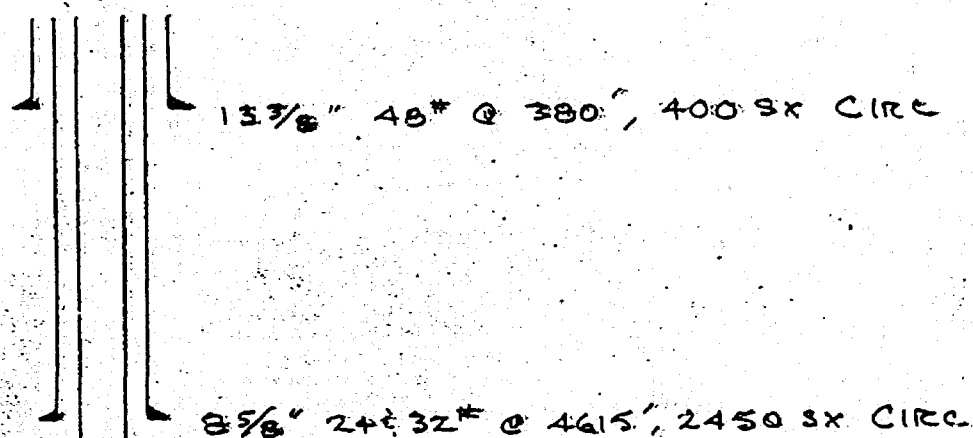 13 3/8" 48# @ 380', 400 SX CIRC
8 5/8" 24 & 32# @ 4615', 2450 SX CIRC.